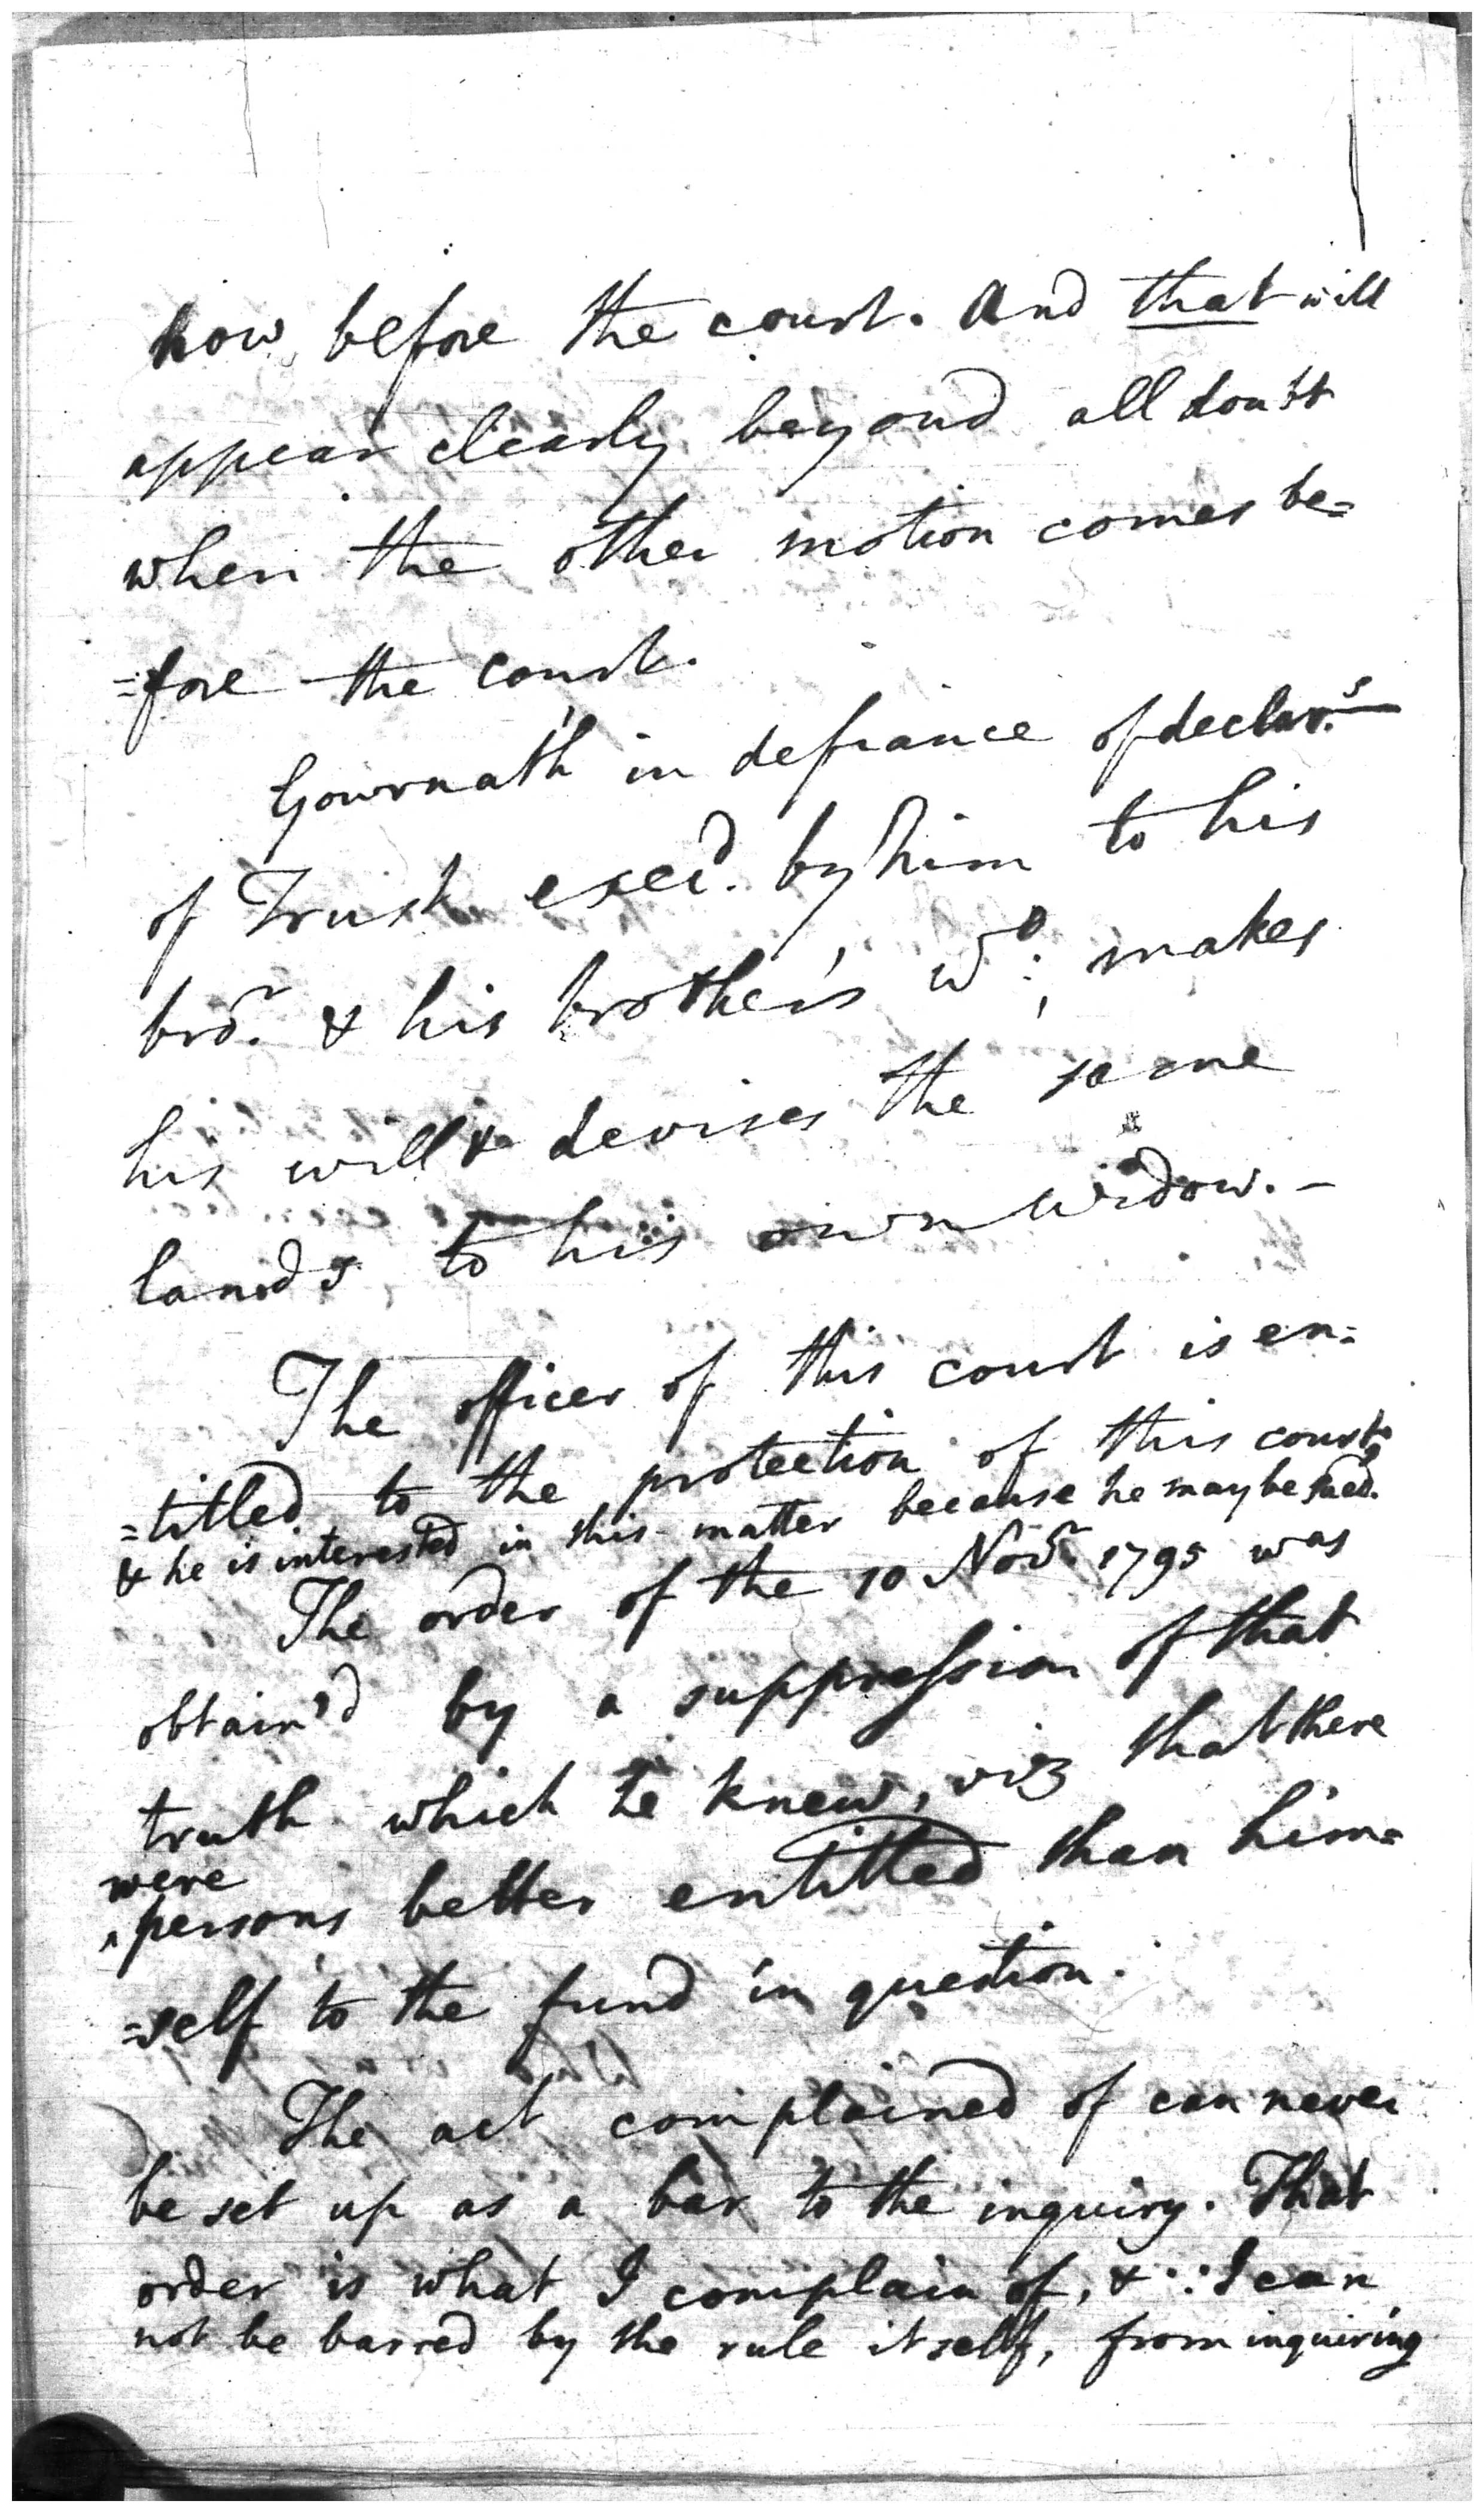 now before the court. And that will
appear clearly beyond all doubt
when the other motion comes be=
=fore the court.
Gowrnath in defiance of declar.s
of Trust exec'd. by him to his
bro.r & his brother's wo:, makes
his will & devises the same
lands to his own widow. -
The officer of this court is en=
=titled to the protection of this court,
& he is interested in this matter because he may be sued.
The order of the 10 Nov.r 1795 was
obtain'd by a suppression of that
truth which he knew, viz that there
were
^ persons better entitled than him=
=self to the fund in question.
The act complained of can never
be set up as a bar to the inquiry. That
order is what I complain of, & ∴ I can
not be barred by the rule itself, from inquiring